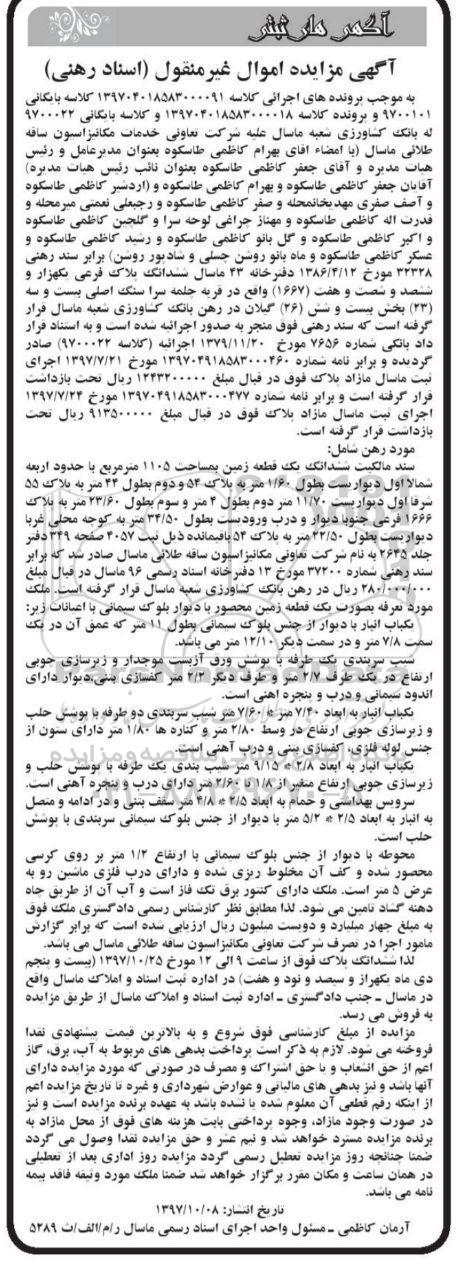 آگهی های ثبتی
آگهی مزایده اموال غیرمنقول (اسناد رهنی)
به موجب پرونده های اجرائی کلاسه ۱۳۹۷۰۴۰۱۸۵۸۳۰۰۰۰۹۱ کلاسه بایگانی
۹۷۰۰۱۰۱ و پرونده کلاسه ۱۳۹۷۰۴۰۱۸۵۸۳۰۰۰۰۱۸ و کلاسه بایگانی ۹۷۰۰۰۲۲
له بانک کشاورزی شعبه ماسال علیه شرکت تعاونی خدمات مکانیزاسیون سافه
طلائی ماسال (با امضاء آقای بهرام کاظمی طاسکوه بعنوان مدیرعامل و رئیس
هیات مدیره و آقای جعفر کاظمی طاسکوه بعنوان نائب رئیس هیات مدیره)
آقایان جعفر کاظمی طاسکوه و بهرام کاظمی طاسکوه و (اردشیر کاظمی طاسکوه
و آصف صفری مهدیخانمحله و صفر کاظمی طاسکوه و رجبعلی نعمتی میرمحله و
قدرت اله کاظمی طاسکوه و مهناز چراغی لوحه سرا و گلچین کاظمی طاسکوه
و اکبر کاظمی طاسکوه و گل بانو کاظمی طاسکوه و رشید کاظمی طاسکوه و
عسکر کاظمی طاسکوه و ماه بانو روشن چسلی و شادپور روشن) برابر سند رهنی
۳۲۳۲۸ مورخ ۱۳۸۶/۴/۱۲ دفترخانه ۴۳ ماسال ششدانگ پلاک فرعی یکهزار و
ششصد و شصت و هفت (۱۶۶۷) واقع در قریه چلمه سرا سنگ اصلی بیست و سه
(۲۳) بخش بیست و شش (۲۶) گیلان در رهن بانک کشاورزی شعبه ماسال قرار
گرفته است که سند رهنی فوق منجر به صدور اجرائیه شده است و به استناد قرار
داد بانکی شماره ۷۶۵۶ مورخ ۱۳۷۹/۱۱/۲۰ اجرائیه (کلاسه ۹۷۰۰۰۲۲) صادر
گردیده و برابر نامه شماره ۱۳۹۷۰۴۹۱۸۵۸۳۰۰۰۴۶۰ مورخ ۱۳۹۷/۷/۲۱ اجرای
ثبت ماسال مازاد پلاک فوق در قبال مبلغ ۱۲۴۳۲۰۰۰۰۰ ریال تحت بازداشت
قرار گرفته است و برابر نامه شماره ۱۳۹۷۰۴۹۱۸۵۸۳۰۰۰۴۷۷ مورخ ۱۳۹۷/۷/۲۴
اجرای ثبت ماسال مازاد پلاک فوق در قبال مبلغ ۹۱۳۵۰۰۰۰۰ ریال تحت
بازداشت قرار گرفته است.
مورد رهن شامل:
سند مالکیت ششدانگ یک قطعه زمین بمساحت ۱۱۰۵ مترمربع با حدود اربعه
شمالا اول دیواریست بطول ۱/۶۰ متر به پلاک ۵۴ و دوم بطول ۴۴ متر به پلاک ۵۵
شرقا اول دیواریست ۱۱/۷۰ متر دوم بطول ۴ متر و سوم بطول ۲۳/۶۰ متر به پلاک
۱۶۶۶ فرعی جنوبا دیوار و درب ورودیست بطول ۳۴/۵۰ متر به کوچه محلی غربا
دیواریست بطول ۲۲/۵۰ متر به پلاک ۵۴ باقیمانده ذیل ثبت ۴۰۵۷ صفحه ۳۴۹ دفتر
جلد ۲۶۴۵ به نام شرکت تعاونی مکانیزاسیون سافه طلائی ماسال صادر شد که برابر
سند رهنی شماره ۳۷۲۰۰ مورخ ۱۳ دفترخانه اسناد رسمی ۹۶ ماسال در قبال مبلغ
۲۸۰/۰۰۰/۰۰۰ ریال در رهن بانک کشاورزی شعبه ماسال قرار گرفته است. ملک
مورد تعرفه بصورت یک قطعه زمین محصور با دیوار بلوک سیمانی با اعیانات زیر:
یکباب انبار با دیوار از جنس بلوک سیمانی بطول ۱۱ متر که عمق آن در یک
سمت ۷/۸ متر و در سمت دیگر ۱۲/۱۰ متر می باشد.
شیب سربندی یک طرفه با پوشش ورق آزبست موجدار و زیرسازی چوبی
ارتفاع در یک طرف ۲/۷ متر و طرف دیگر ۲/۳ متر کفسازی بتنی،دیوار دارای
اندود سیمانی و درب و پنجره آهنی است.
یکباب انبار به ابعاد ۷/۴۰ متر * ۷/۶۰ متر شیب سربندی دو طرفه با پوشش حلب
و زیرسازی چوبی ارتفاع در وسط ۲/۸۰ متر و کناره ها ۱/۸۰ متر دارای ستون از
جنس لوله فلزی، کفسازی بتنی و درب آهنی است.
یکباب انبار به ابعاد ۲/۸ * ۹/۱۵ متر شیب بندی یک طرفه با پوشش حلب و
زیرسازی چوبی ارتفاع متغیر از ۱/۸ تا ۲/۶۰ متر دارای درب و پنجره آهنی است.
سرویس بهداشتی و حمام به ابعاد ۲/۵ * ۴/۸ متر سقف بتنی و در ادامه و متصل
به انبار به ابعاد ۲/۵ * ۵/۲ متر با دیوار از جنس بلوک سیمانی سربندی با پوشش
حلب است.
محوطه با دیوار از جنس بلوک سیمانی با ارتفاع ۱/۲ متر بر روی کرسی
محصور شده و کف آن مخلوط ریزی شده و دارای درب فلزی ماشین رو به
عرض ۵ متر است. ملک دارای کنتور برق تک فاز است و آب آن از طریق چاه
دهنه گشاد تامین می شود. لذا مطابق نظر کارشناس رسمی دادگستری ملک فوق
به مبلغ چهار میلیارد و دویست میلیون ریال ارزیابی شده است که برابر گزارش
مامور اجرا در تصرف شرکت تعاونی مکانیزاسیون سافه طلائی ماسال می باشد.
لذا ششدانگ پلاک فوق از ساعت ۹ الی ۱۲ مورخ ۱۳۹۷/۱۰/۲۵ (بیست و پنجم
دی ماه یکهزار و سیصد و نود و هفت) در اداره ثبت اسناد و املاک ماسال واقع
در ماسال ـ جنب دادگستری ـ اداره ثبت اسناد و املاک ماسال از طریق مزایده
به فروش می رسد.
مزایده از مبلغ کارشناسی فوق شروع و به بالاترین قیمت پیشنهادی نقدا
فروخته می شود. لازم به ذکر است پرداخت بدهی های مربوط به آب، برق، گاز
اعم از حق انشعاب و یا حق اشتراک و مصرف در صورتی که مورد مزایده دارای
آنها باشد و نیز بدهی های مالیاتی و عوارض شهرداری و غیره تا تاریخ مزایده اعم
از اینکه رقم قطعی آن معلوم شده یا نشده باشد به عهده برنده مزایده است و نیز
در صورت وجود مازاد، وجوه پرداختی بابت هزینه های فوق از محل مازاد به
برنده مزایده مسترد خواهد شد و نیم عشر و حق مزایده نقدا وصول می گردد
ضمنا چنانچه روز مزایده تعطیل رسمی گردد مزایده روز اداری بعد از تعطیلی
در همان ساعت و مکان مقرر برگزار خواهد شد ضمنا ملک مورد وثیقه فاقد بیمه
نامه می باشد.
تاریخ انتشار: ۱۳۹۷/۱۰/۰۸
آرمان کاظمی ـ مسئول واحد اجرای اسناد رسمی ماسال ر/م/الف/ث ۵۲۸۹